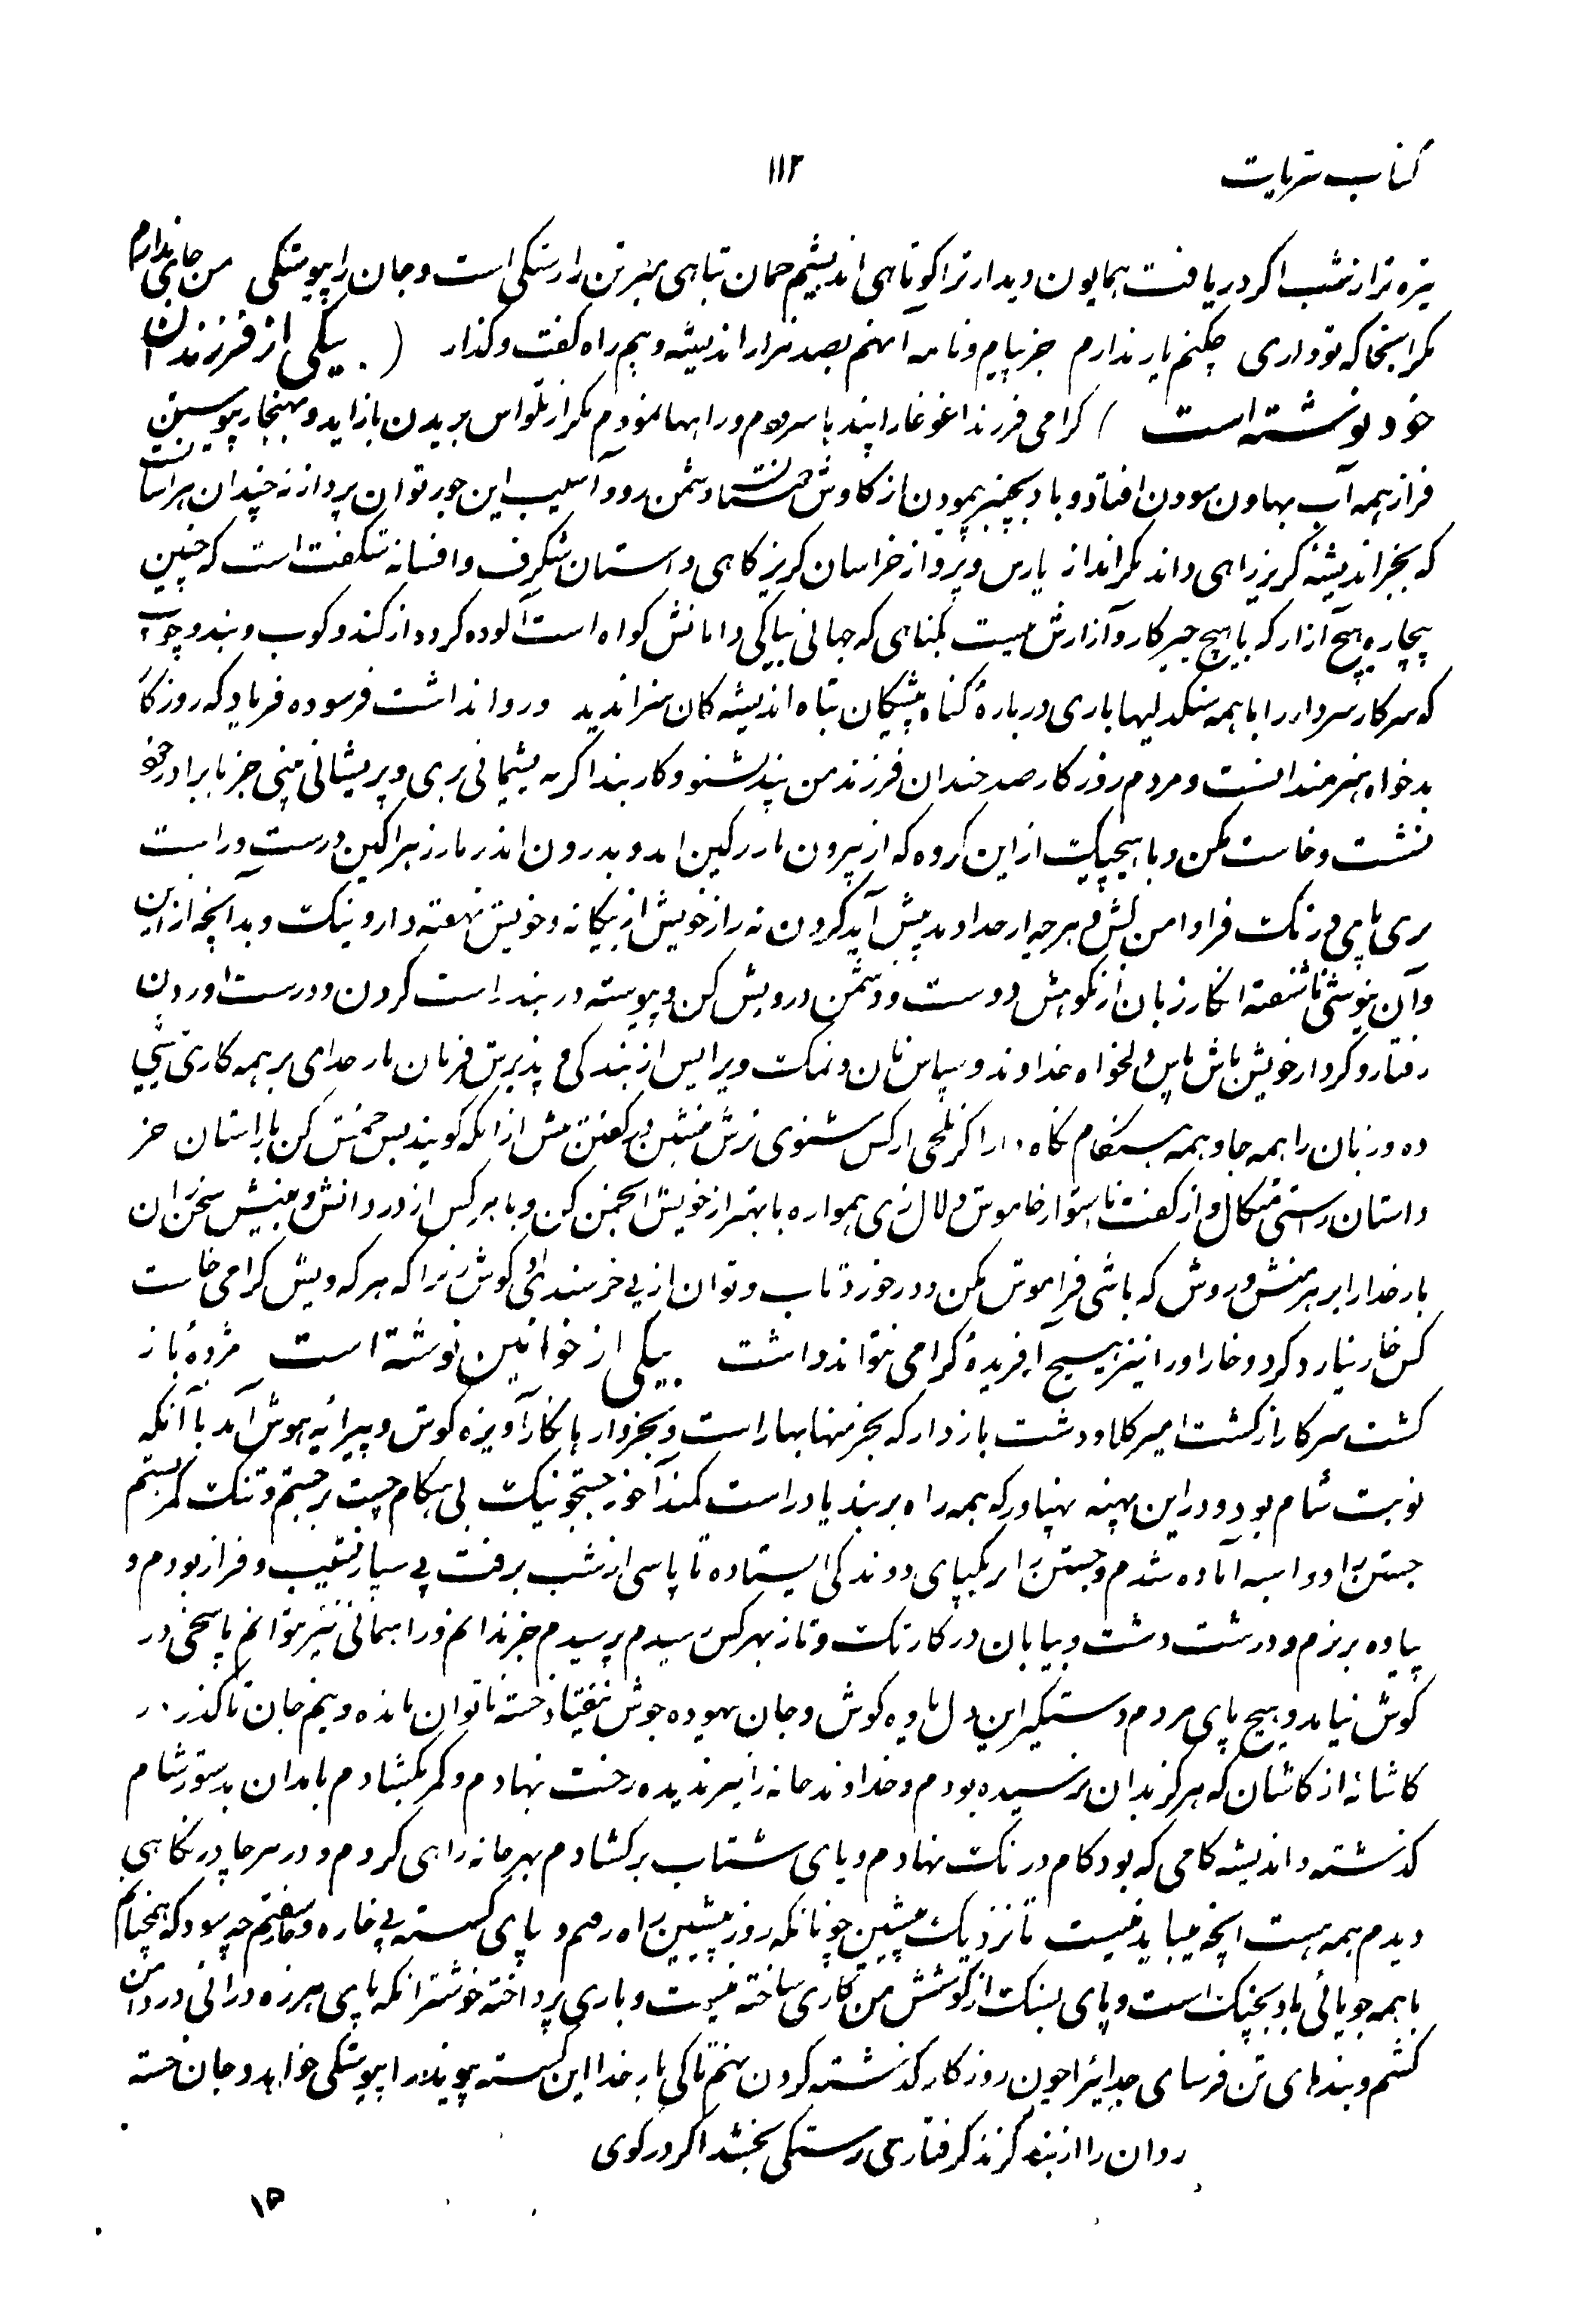 کتاب سرباب
۱۱۲
تیره تر از شب اگر دریافت همایون دیدار ترا کوتاهی اندیشیم همان تباهی هنر تن را رستگی است و جان را پیوستگی من جای ندارم
مگر اینجا که تو داری چکنم یار ندارم جز پیام و نامه آنهم بصد هزار اندیشه و بیم راه گفت و گذار ( یکی از فرزندان
خود نوشته است ) گرامی فرزند اغوغا را پند با سرودم و راهها نمودم مگر از تلواس بریدن باز اید و بهنجار پیوستن
فراز همه آب بهاون سودن افتاد و باد بچنبر پیمودن از کاوش دشمن رود و آسیب این جور توان پرداز نه چندان هراسانست
که بجز اندیشه گریز راهی داند مگر انداز پارس و پرواز خراسان گریزگاهی داستان شگرف و افسانه شگفت است که چنین
بیچاره هیچ آزار که با هیچ جیز کار و آزارش نیست بگناهی که جهانی بپاکی دامانش گواه است آلوده گردد از کند و کوب و بند و چوب
که سرکار سردار را با همه سنگدلیها باری درباره گناه پیشگان تباه اندیشه کان سزا ندید و روا نداشت فرسوده فرماید که روزگار
بدخواه هنرمند انست و مردم روزگار صد چندان فرزند من پند بشنو و کار بند اگر نه پشیمانی بری و پریشانی بینی جز با برادر خود
نشست و خاست مکن و با هیچیک از این گروه که از بیرون مار رنگین اند و بدرون اندر مار زهراگین درست و راست
مری پای درنگ فرا دامن کش و هرچه از خداوند پیش آید گردن نه راز خویش از بیگانه و خویش نهفته دار و نیک و بد آنچه از این
و آن نیوشی ناشنفته انگار زبان از نکوهش دوست و دشمن درویش کن و پیوسته در بند راست کردن و درست اوردن
رفتار و کردار خویش باش پاس دلخواه خداوند و سپاس نان و نمک ویرا پس از بندگی و پذیرش فرمان بار خدای بر همه کاری پیشی
ده و زبان را همه جا و همه هنگام نگاه دار اگر تلخی از کس شنوی ترش منشین در گفتن بیش از انکه گویند بس خمش کن با راستان جز
داستان راستی مسگال و از گفت نا استوار خاموش و لال زی همواره با بهتر از خویش انجمن کن و با هر کس از در دانش و بینش سخن ران
بار خدا را بر هر منش و روش که باشی فراموش مکن و در خورد تاب و توان از پی خرسندی او کوش زیرا که هر که ویش گرامی خاست
کس خار نیارد کرد و خار او را نیز هیچ آفریده گرامی نتواند داشت یکی از خوانین نوشته است مژده باز
گشت سرکار از گشت امیر کلا و دشت بازدار که بجز منها بهار است و بجز دار با نگار آویزه گوش و پیرایه هوش آمد با آنکه
نوبت شام بود و در این پهنه پهناور که همه راه بر بند یا دراست کمند آخور جستجو نیک بی هنگام چست برجستم و تنگ کمر بستم
جستن را دو اسبه آماده شدم و جستن را بر یکپای دوندگی ایستاده تا پاسی از شب برفت پی سپار نشیب و فراز بودم و
پیاده بر نرم و درشت دشت و بیابان در کار تک و تاز بهر کس رسیدم پرسیدم جز ندانم و راهنمائی نیز نتوانم پاسخی در
گوش نیامد و هیچ پای مردم دستگیر این دل یاوه کوش و جان بیهوده جوش نیفتاد خسته ناتوان مانده و نیم جان ناگذر در
کاشانه از کاشان که هرگز بدان نرسیده بودم و خداوند خانه را نیز ندیده رخت نهادم و کمر بگشادم بامدان بدستور شام
گذشته و اندیشه کامی که بود گام درنگ نهادم و پای شتاب برگشادم بهر خانه راهی کردم و در هر جا در نگاهی
دیدم همه هست انچه میباید نیست تا نزدیک پیشین چونانکه روز پیشین راه رفتم و پای گسسته پی خاره و خار سفتم چه سود که همچنانم
با همه جویائی باد بچنگ است و پای بسنگ از کوشش من کاری ساخته نیست و باری پرداخته خوشتر انکه پای هرزه درائی در دامن
کشم و بندهای تن فرسای جدائیرا چون روزگار گذشته گردن نهم تا کی بار خدا این گسسته پیوند را پیوستگی خواهد و جان خسته
روان را از بند گزند گرفتاری رستگی بخشد اگر در کوی
۱۵